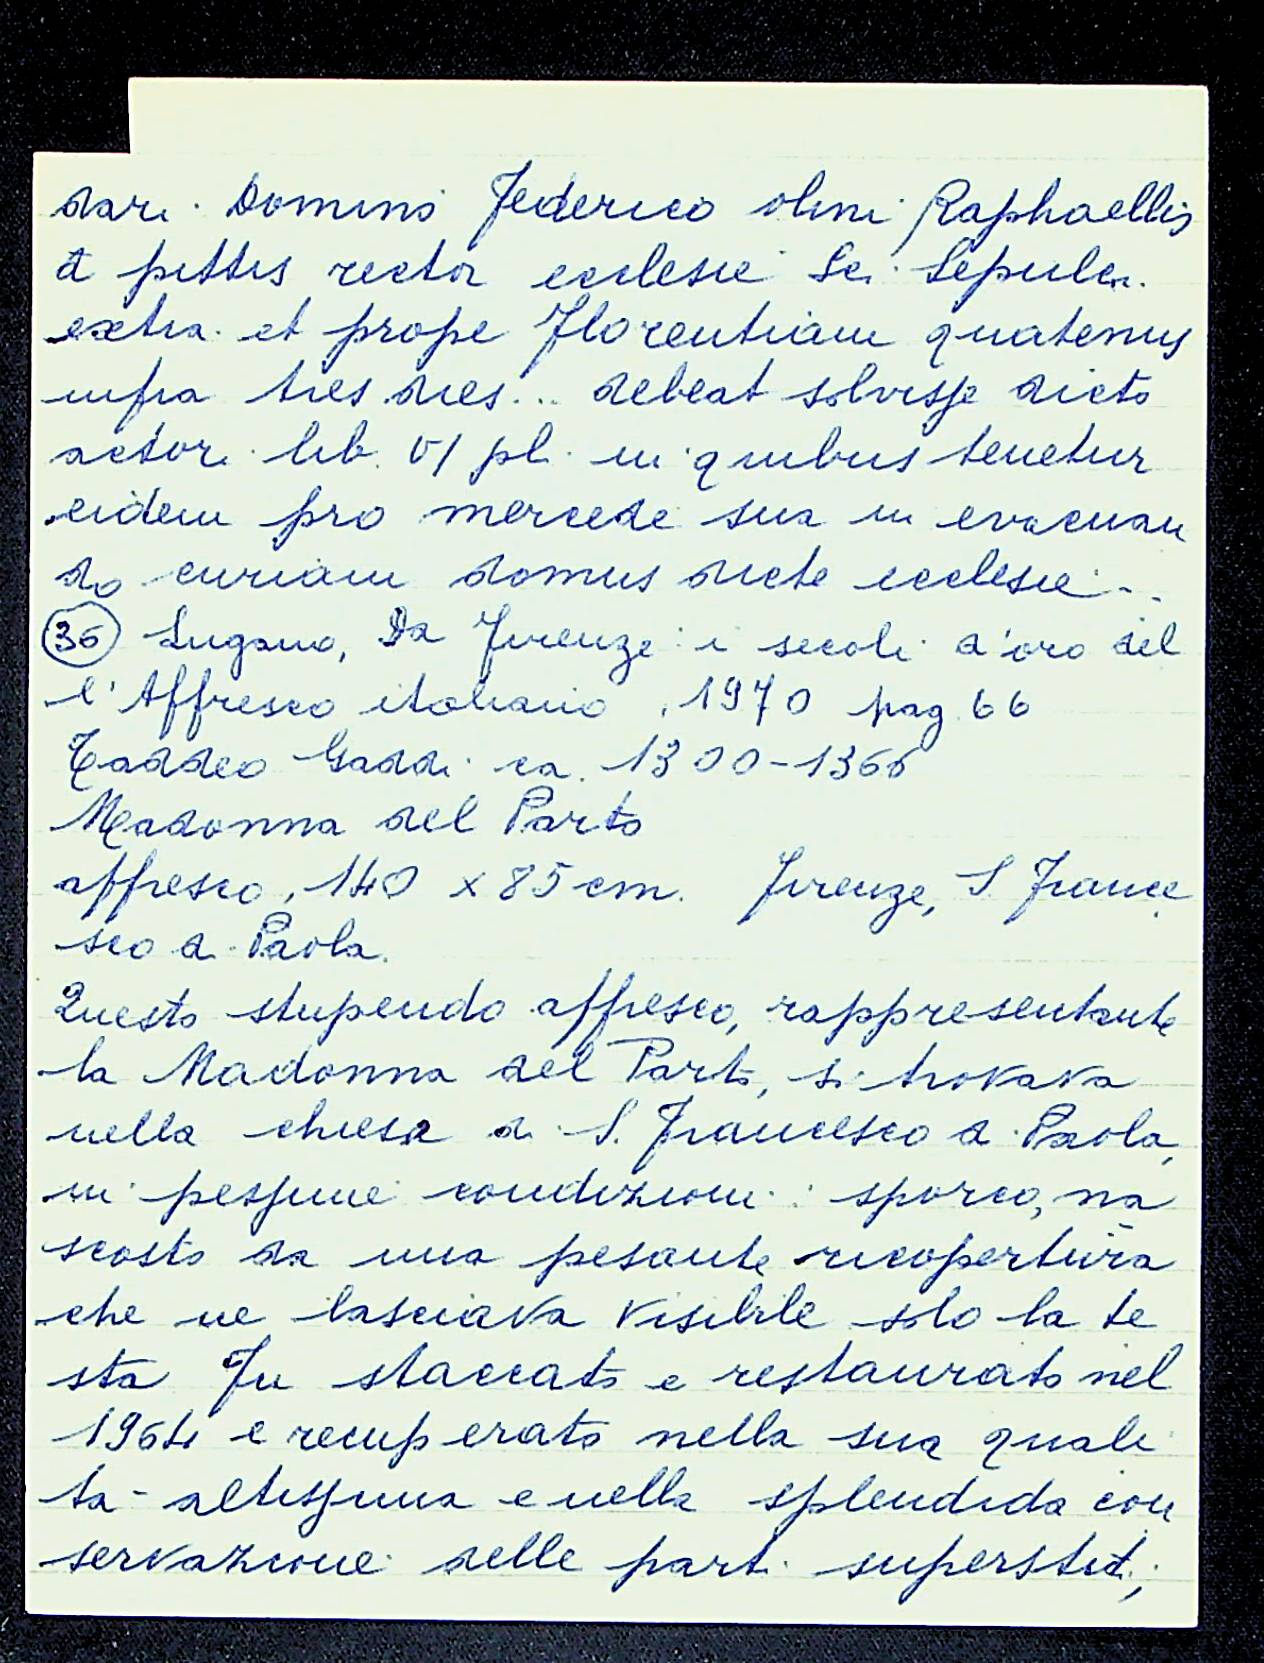 dari Domino Federico olim Raphaellis
de pittis rector ecclesie Sci Sepulcr.
extra et prope Florentiam quatenus
infra tres dies... debeat solvisse dicto
actori lib. VI pl. in quibus tenetur
eidem pro mercede sua in evacuan
do curiam domus dicte ecclesie...
36 Lugano, Da Firenze i secoli d'oro del
l'Affresco italiano, 1970 pag. 66
Taddeo Gaddi ca. 1300-1366
Madonna del Parto
affresco, 140 x 85 cm. Firenze, S. France
sco di Paola.
Questo stupendo affresco, rappresentante
la Madonna del Parto, si trovava
nella chiesa di S. Francesco di Paola,
in pessime condizioni: sporco, na
scosto da una pesante ricopertura
che ne lasciava visibile solo la te
sta Fu staccato e restaurato nel
1964 e recuperato nella sua quali
tà altissima e nella splendida con
servazione delle parti superstiti;